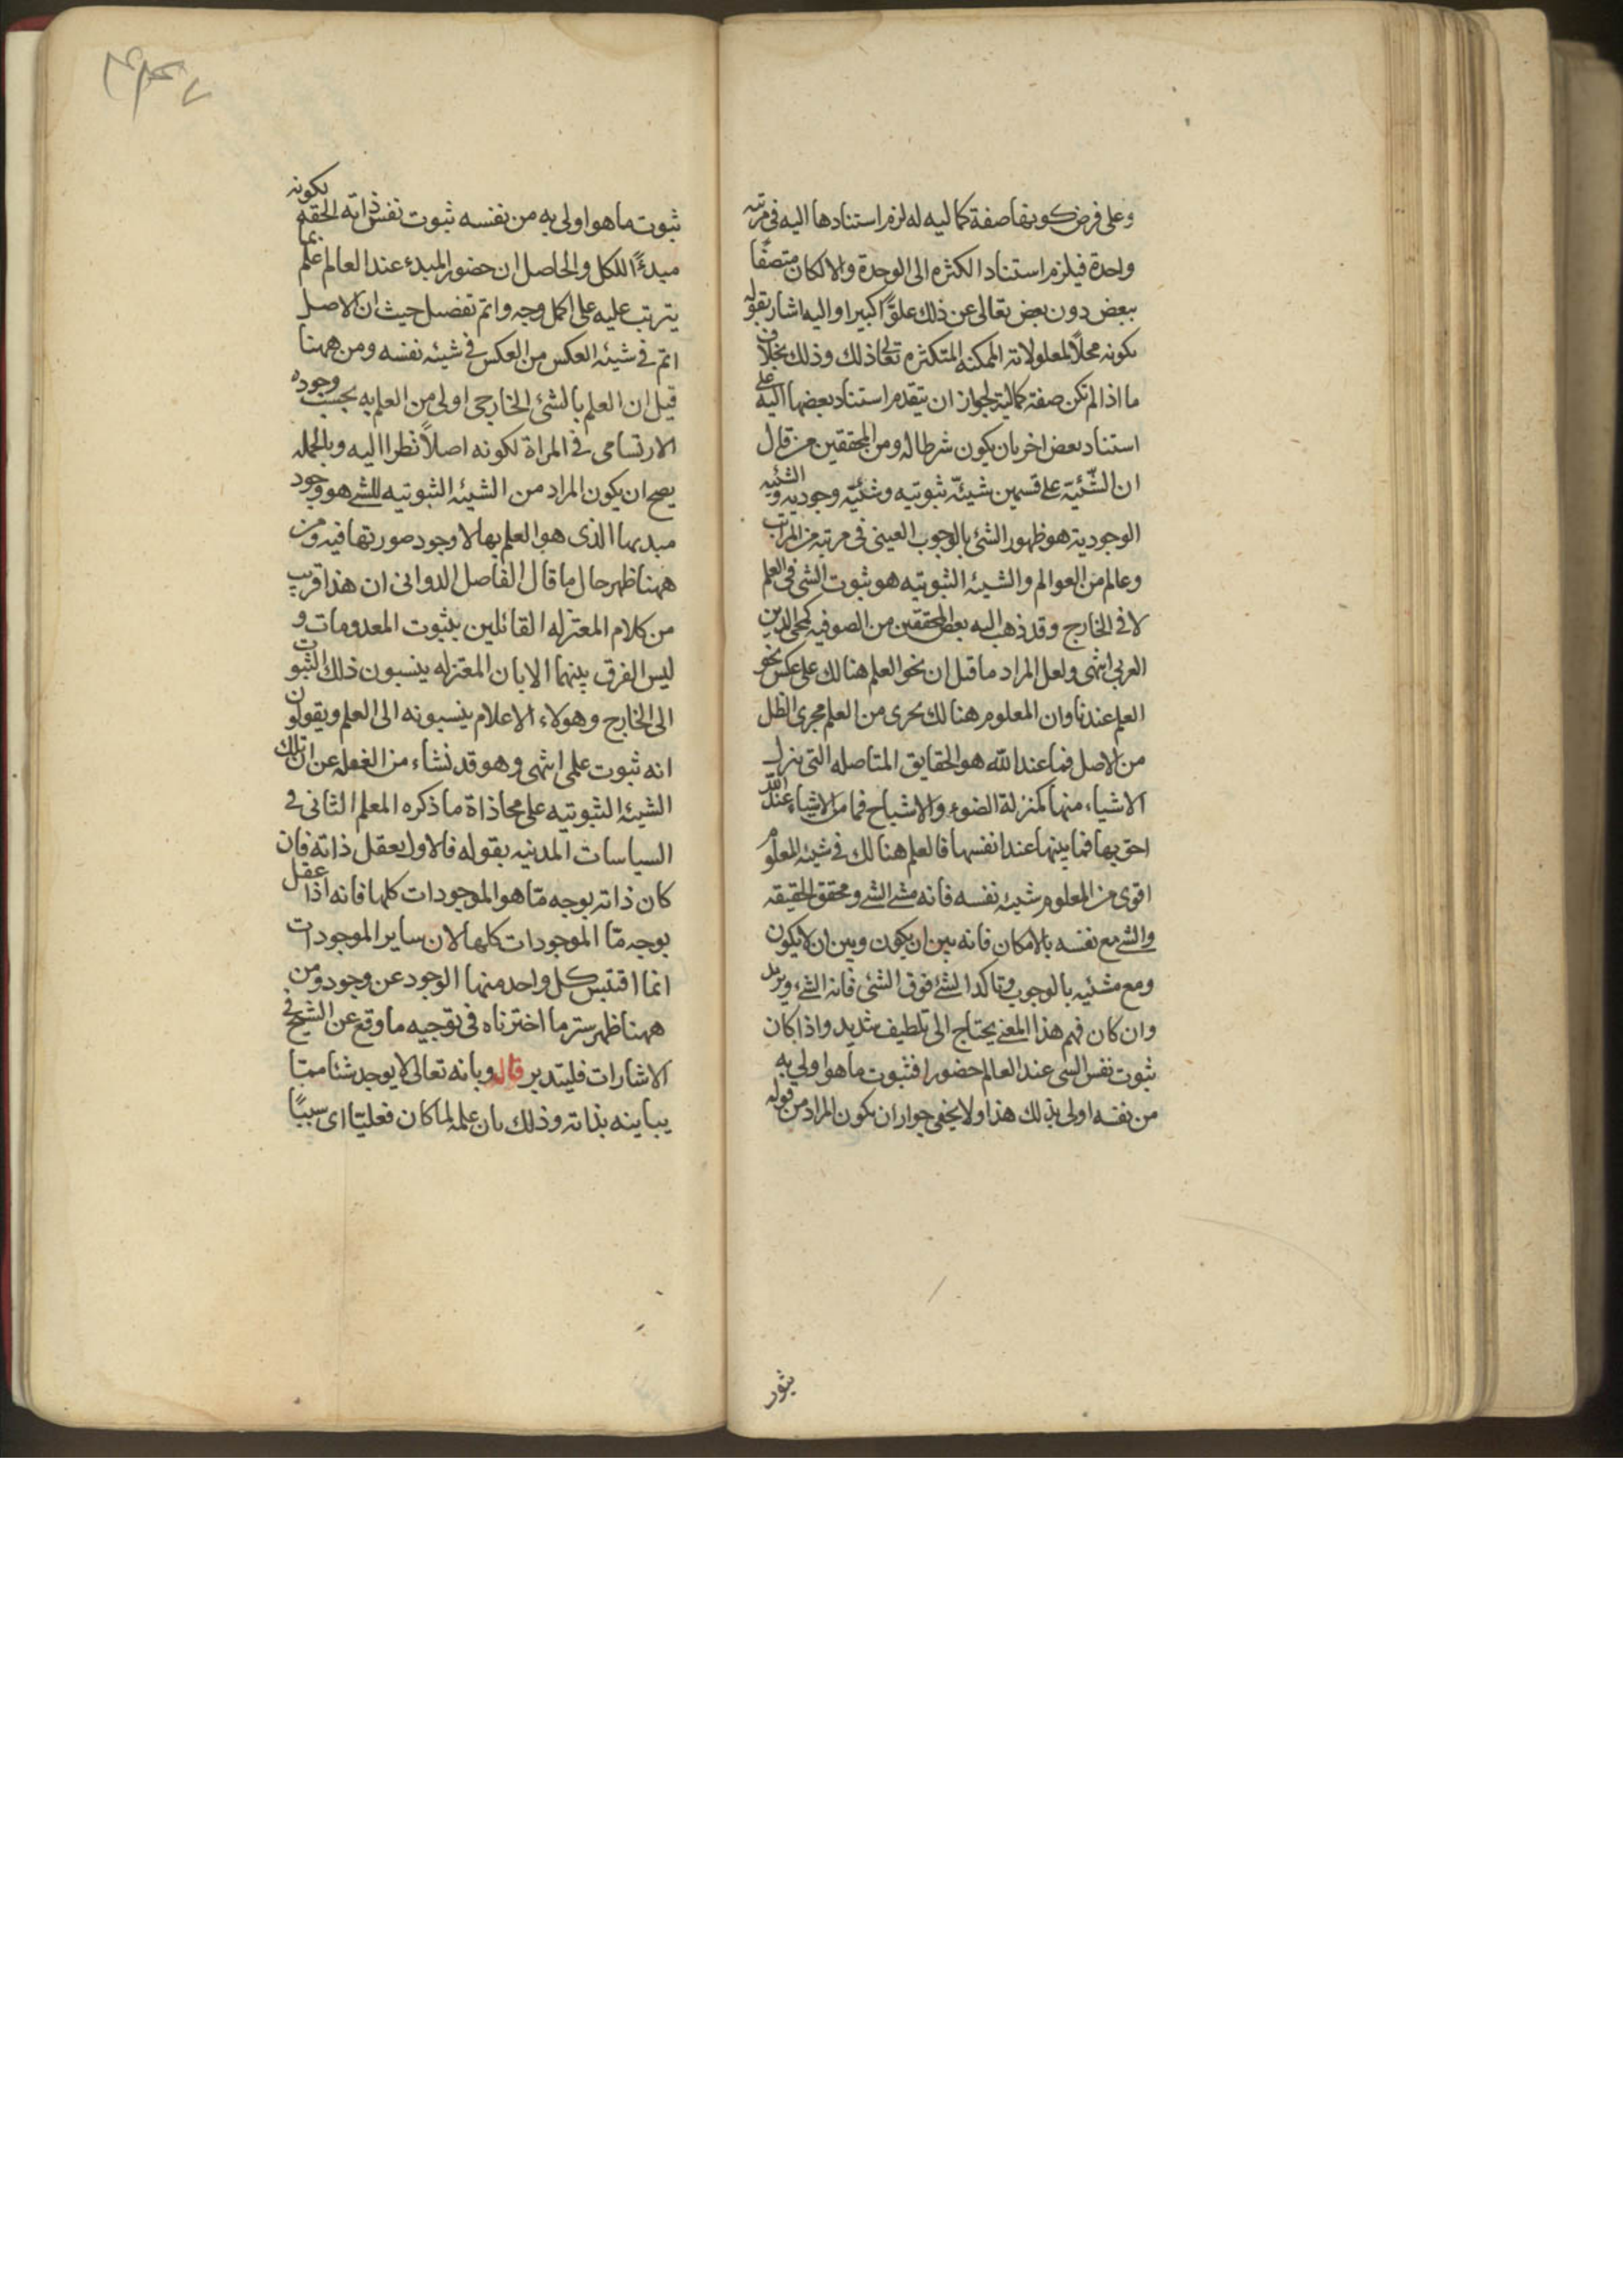 وعلى فرض كونها صفة كماليه له لزم استنادها اليه فى مرتبه
واحدة فيلزم استناد الكثره الى الوحدة والا لكان متصفًا
ببعض دون بعض تعالى عن ذلك علوًّا كبيرا واليه اشار بقوله
بكونه محلًا لمعلولاته الممكنه المتكثره تعالى عن ذلك وذلك بخلاف
ما اذا لم تكن صفة كمالية لجواز ان يتقدم استناد بعضها اليه على
استناد بعض اخر بان يكون شرطا له ومن المحققين من قال
ان الشّئيّة على قسمين شيئيّة ثبوتيه وشئيّة وجوديه والشئيه
الوجودية هو ظهور الشئ بالوجوب العينى فى مرتبه من المراتب
وعالم من العوالم والشيئه الثبوتيه هو ثبوت الشى فى العلم
لا فى الخارج وقد ذهب اليه بعض المحققين من الصوفيه كمحى الدين
العربى انتهى ولعل المراد ما قيل ان نحو العلم هنالك على عكس نحو
العلم عندنا وان المعلوم هنالك يحرى من العلم مجرى الظل
من الاصل فما عند الله هو الحقايق المتاصله التى ينزل
الاشياء منها كمنزلة الضوء والاشباح فما من الاشياء عند الله
احق بها فما بينها عند انفسها فالعلم هنالك فى شيئه المعلوم
اقوى من المعلوم شيئه نفسه فانه مشئ الشئ ومحقق الحقيقه
والشئ مع نفسه بالامكان فانه بين ان يكون وبين ان لا يكون
ومع مشئيه بالوجوب وتاكد الشئ فوق الشئى فانه الشئ ويزيد
وان كان فهم هذا المعنى يحتاج الى تلطيف شديد واذا كان
ثبوت نفس الشى عند العالم حضورا فثبوت ما هو اولى به
من نفسه اولى بذلك هذا ولا يخفى جواز ان يكون المراد من قوله
ثبوت ما هو اولى به من نفسه ثبوت نفس ذاته الحقه بكونه
مبدءًا للكل والحاصل ان حضور المبدء عند العالم علم بما
يترتب عليه على اكمل وجه واتم تفصيل حيث ان الاصل
اتم فى شيئه العكس من العكس فى شيئه نفسه ومن ههنا
قيل ان العلم بالشئ الخارجى اولى من العلم به بحسب وجوده
الارتسامى فى المراة لكونه اصلاً نظرا اليه وبالجمله
يصح ان يكون المراد من الشيئه الثبوتيه للشئ هو وجود
مبديها الذى هو العلم بها لا وجود صورتها فيه ومن
ههنا ظهر حال ما قال الفاضل الدوانى ان هذا قريب
من كلام المعتزله القائلين بثبوت المعدومات و
ليس الفرق بينهما الا بان المعتزله ينسبون ذلك الثبوت
الى الخارج وهولاء الاعلام ينسبونه الى العلم ويقولون
انه ثبوت علمى انتهى وهو قد نشاء من الغفله عن ان تلك
الشيئه الثبوتيه على محاذاة ما ذكره المعلم الثانى فى
السياسات المدنيه بقوله فالاول يعقل ذاته فان
كان ذاته بوجه مّا هو الموجودات كلها فانه اذا عقل
بوجه مّا الموجودات كلها لان ساير الموجودات
انما اقتبس كل واحد منها الوجود عن وجود ومن
ههنا ظهر ستر ما اخترناه فى توجيه ما وقع عن الشيخ فى
الاشارات فليتدبر قاله وبانه تعالى لا يوجد شئا ممّا
يباينه بذاته وذلك بان علمه لما كان فعليًا اى سببًا
ثبوت